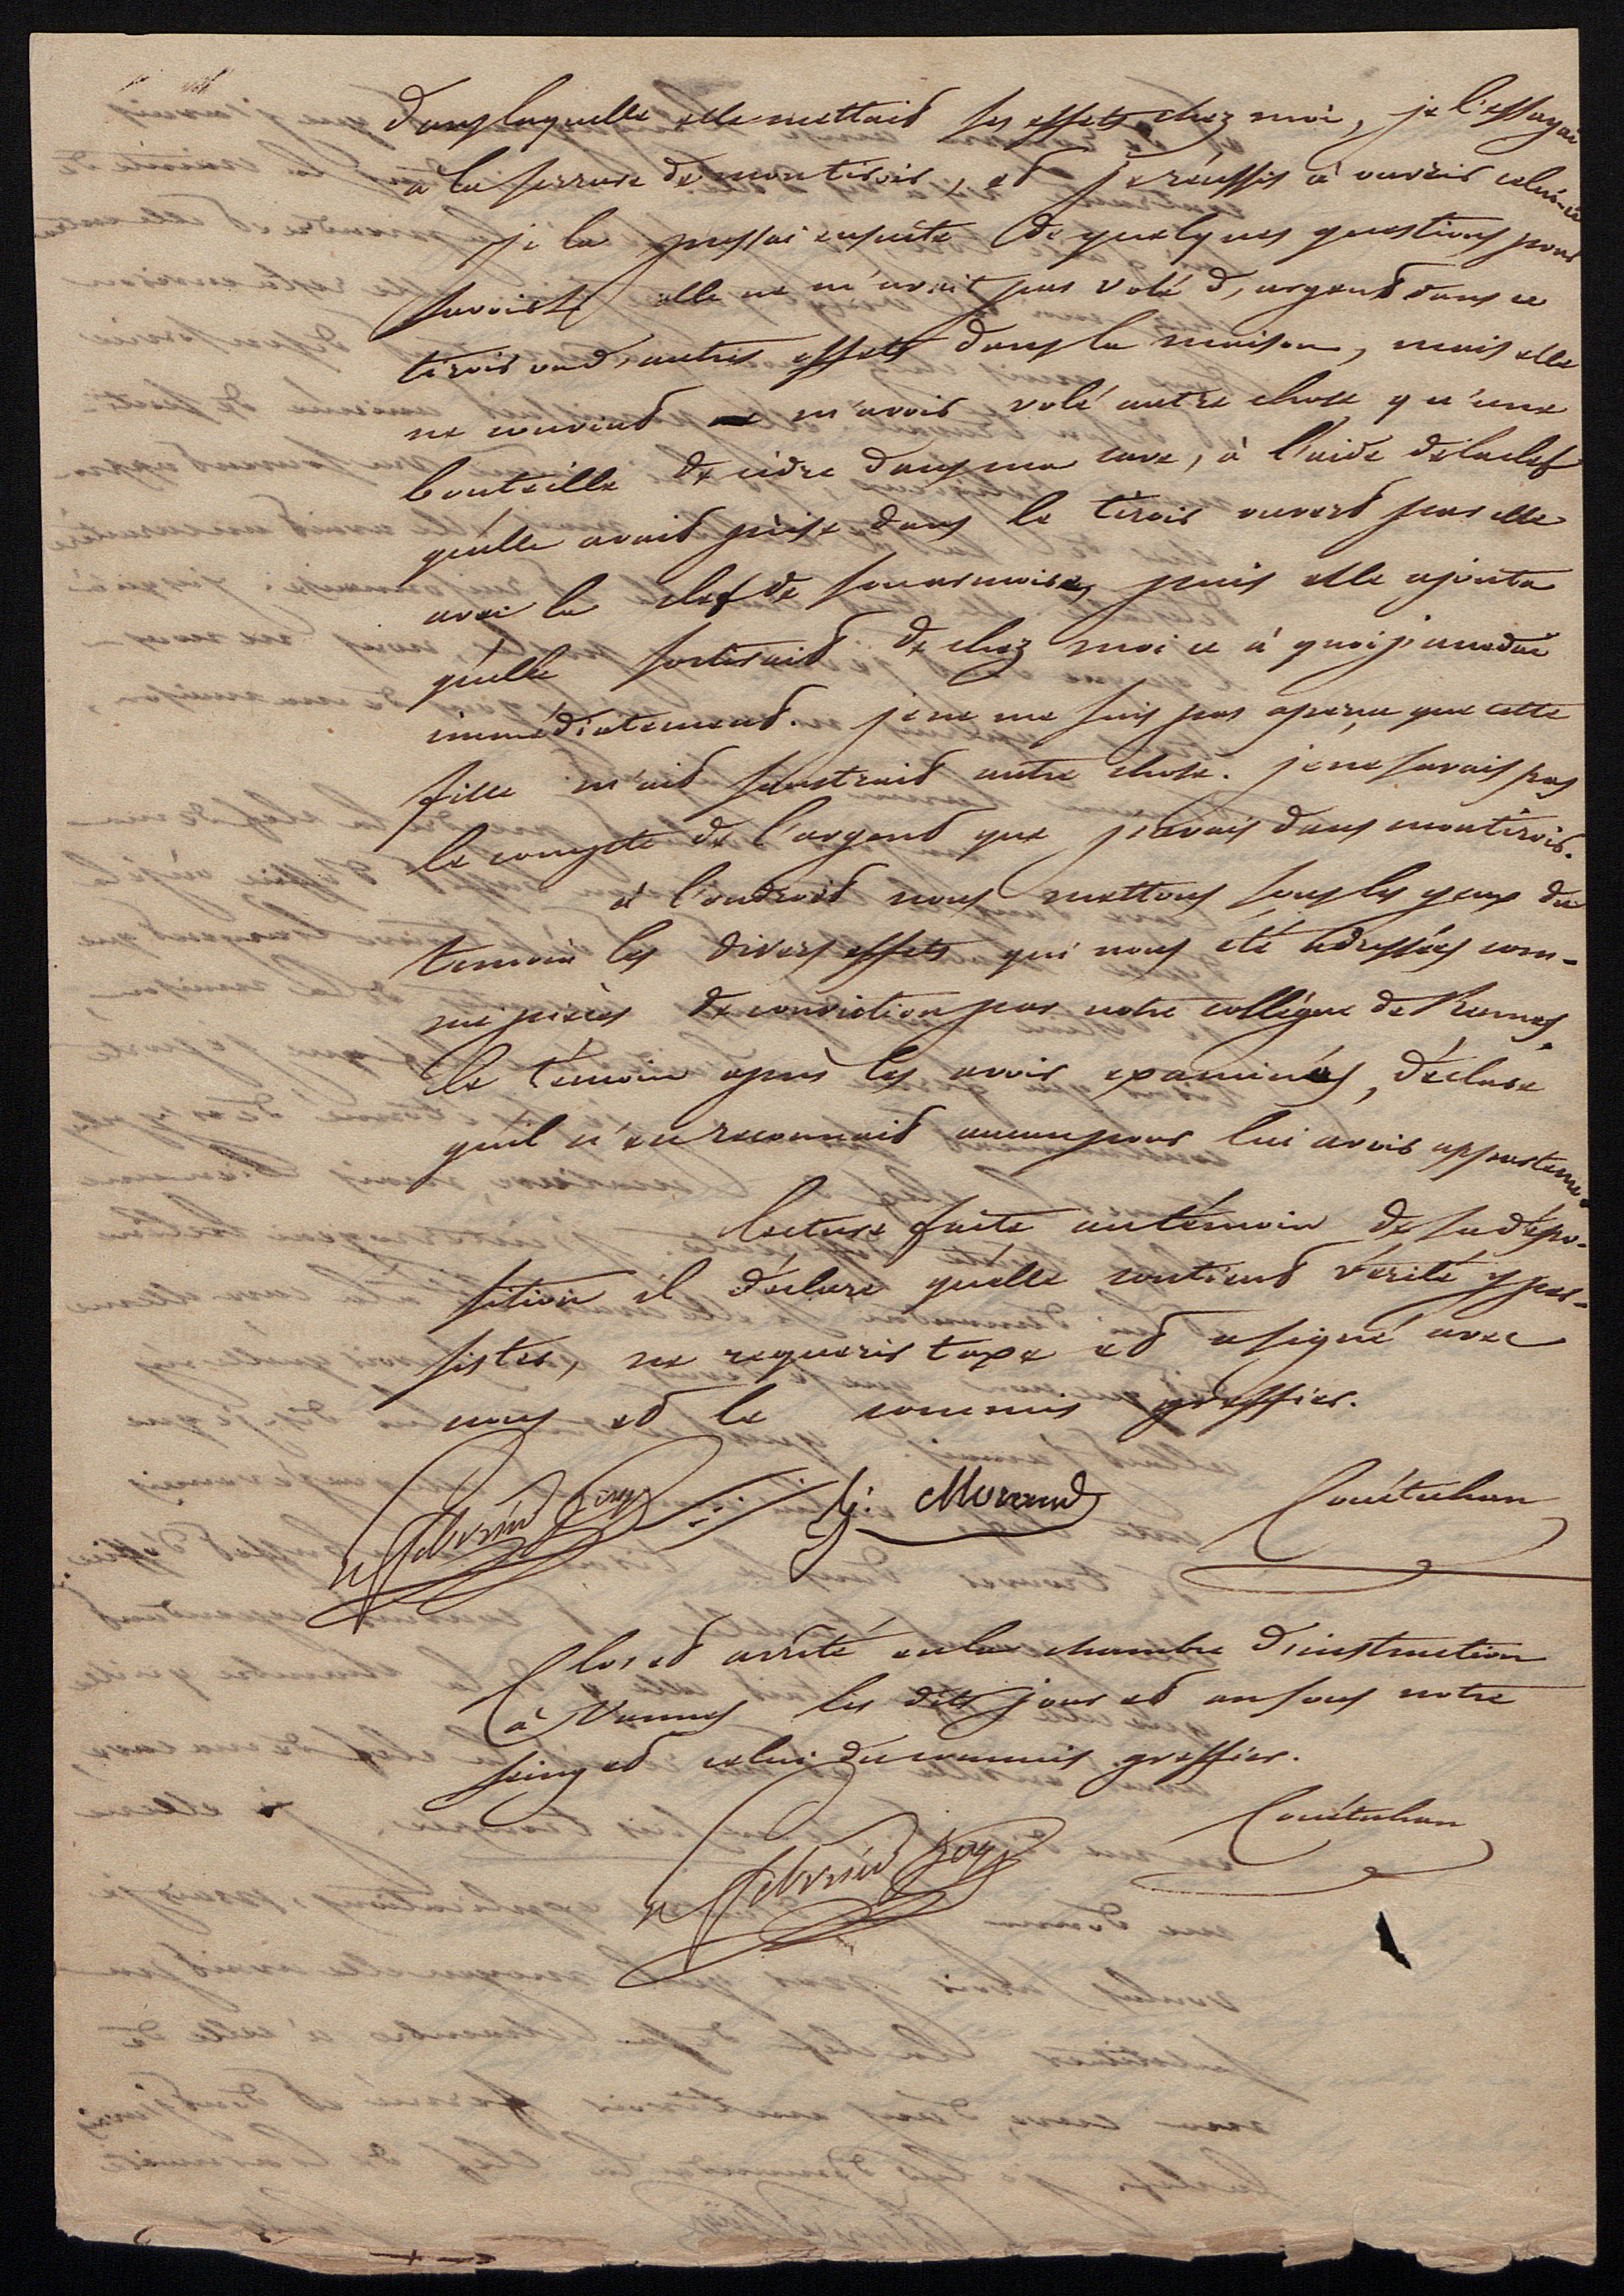 dans laquelle elle mettait ses effets chez moi, je l'essayai
à la serrure de mon tiroir, et je réussis à ouvrir celui-ci
je la pressai ensuite de quelques questions pour
savoir si elle ne m'avait pas volé d'argent dans ce
tiroir ou d'autres effets dans la maison, mais elle
ne convint m'avoir volé autre chose qu'une
bouteille de cidre dans ma cave, à l'aide de la clef
qu'elle avait prise dans le tiroir ouvert par elle
avec la clef de son armoire, puis elle ajouta
qu'elle sortirait de chez moi ce à quoi j'accédai
immédiatement. je ne me suis pas aperçu que cette
fille m'ait soustrait autre chose. je ne savais pas
le compte de l'argent que j'avais dans mon tiroir.
à l'endroit nous mettons sous les yeux du
temoin les divers effets qui nous été adressés com-
me pièces de conviction par notre collègue de Rennes,
le témoin après les avoir examinés, déclare
qu'il n'en reconnait aucun pour lui avoir appartenu.
Lecture faite au témoin de sa dépo-
sition il déclare qu'elle contient vérité y per-
sister, ne requérir taxe et a signé avec
nous et le commis greffier.
J: Morand Couëtuhan
Clos et arrêté en la chambre d'instruction
à Vannes les dits jour et an sous notre
seing et celui du commis greffier.
Couëtuhan